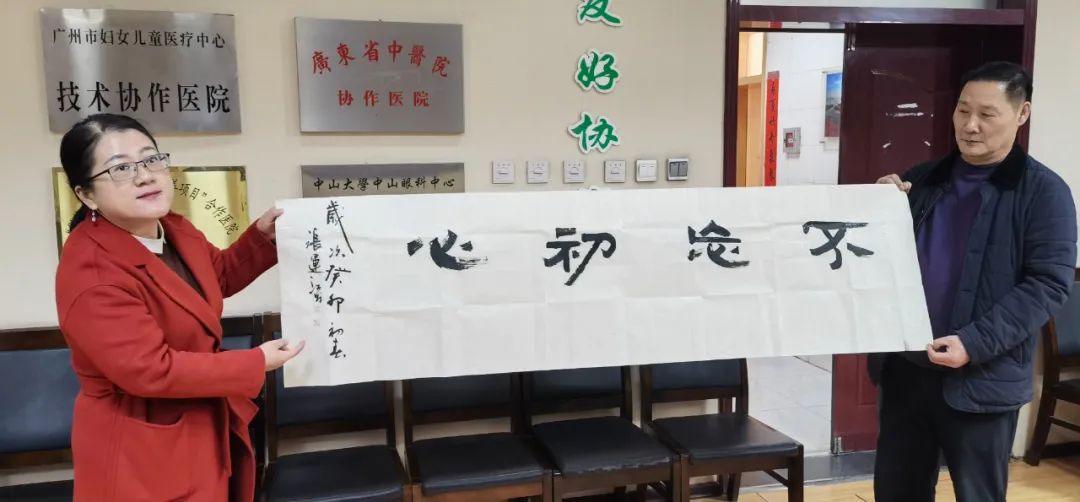 广州市妇女儿童医疗中心
技术协作医院
廣東省中醫院
协作医院
友好协
项目"合作医院
中山大學中山眼科中心
不忘初心
歲次癸卯初春
張運